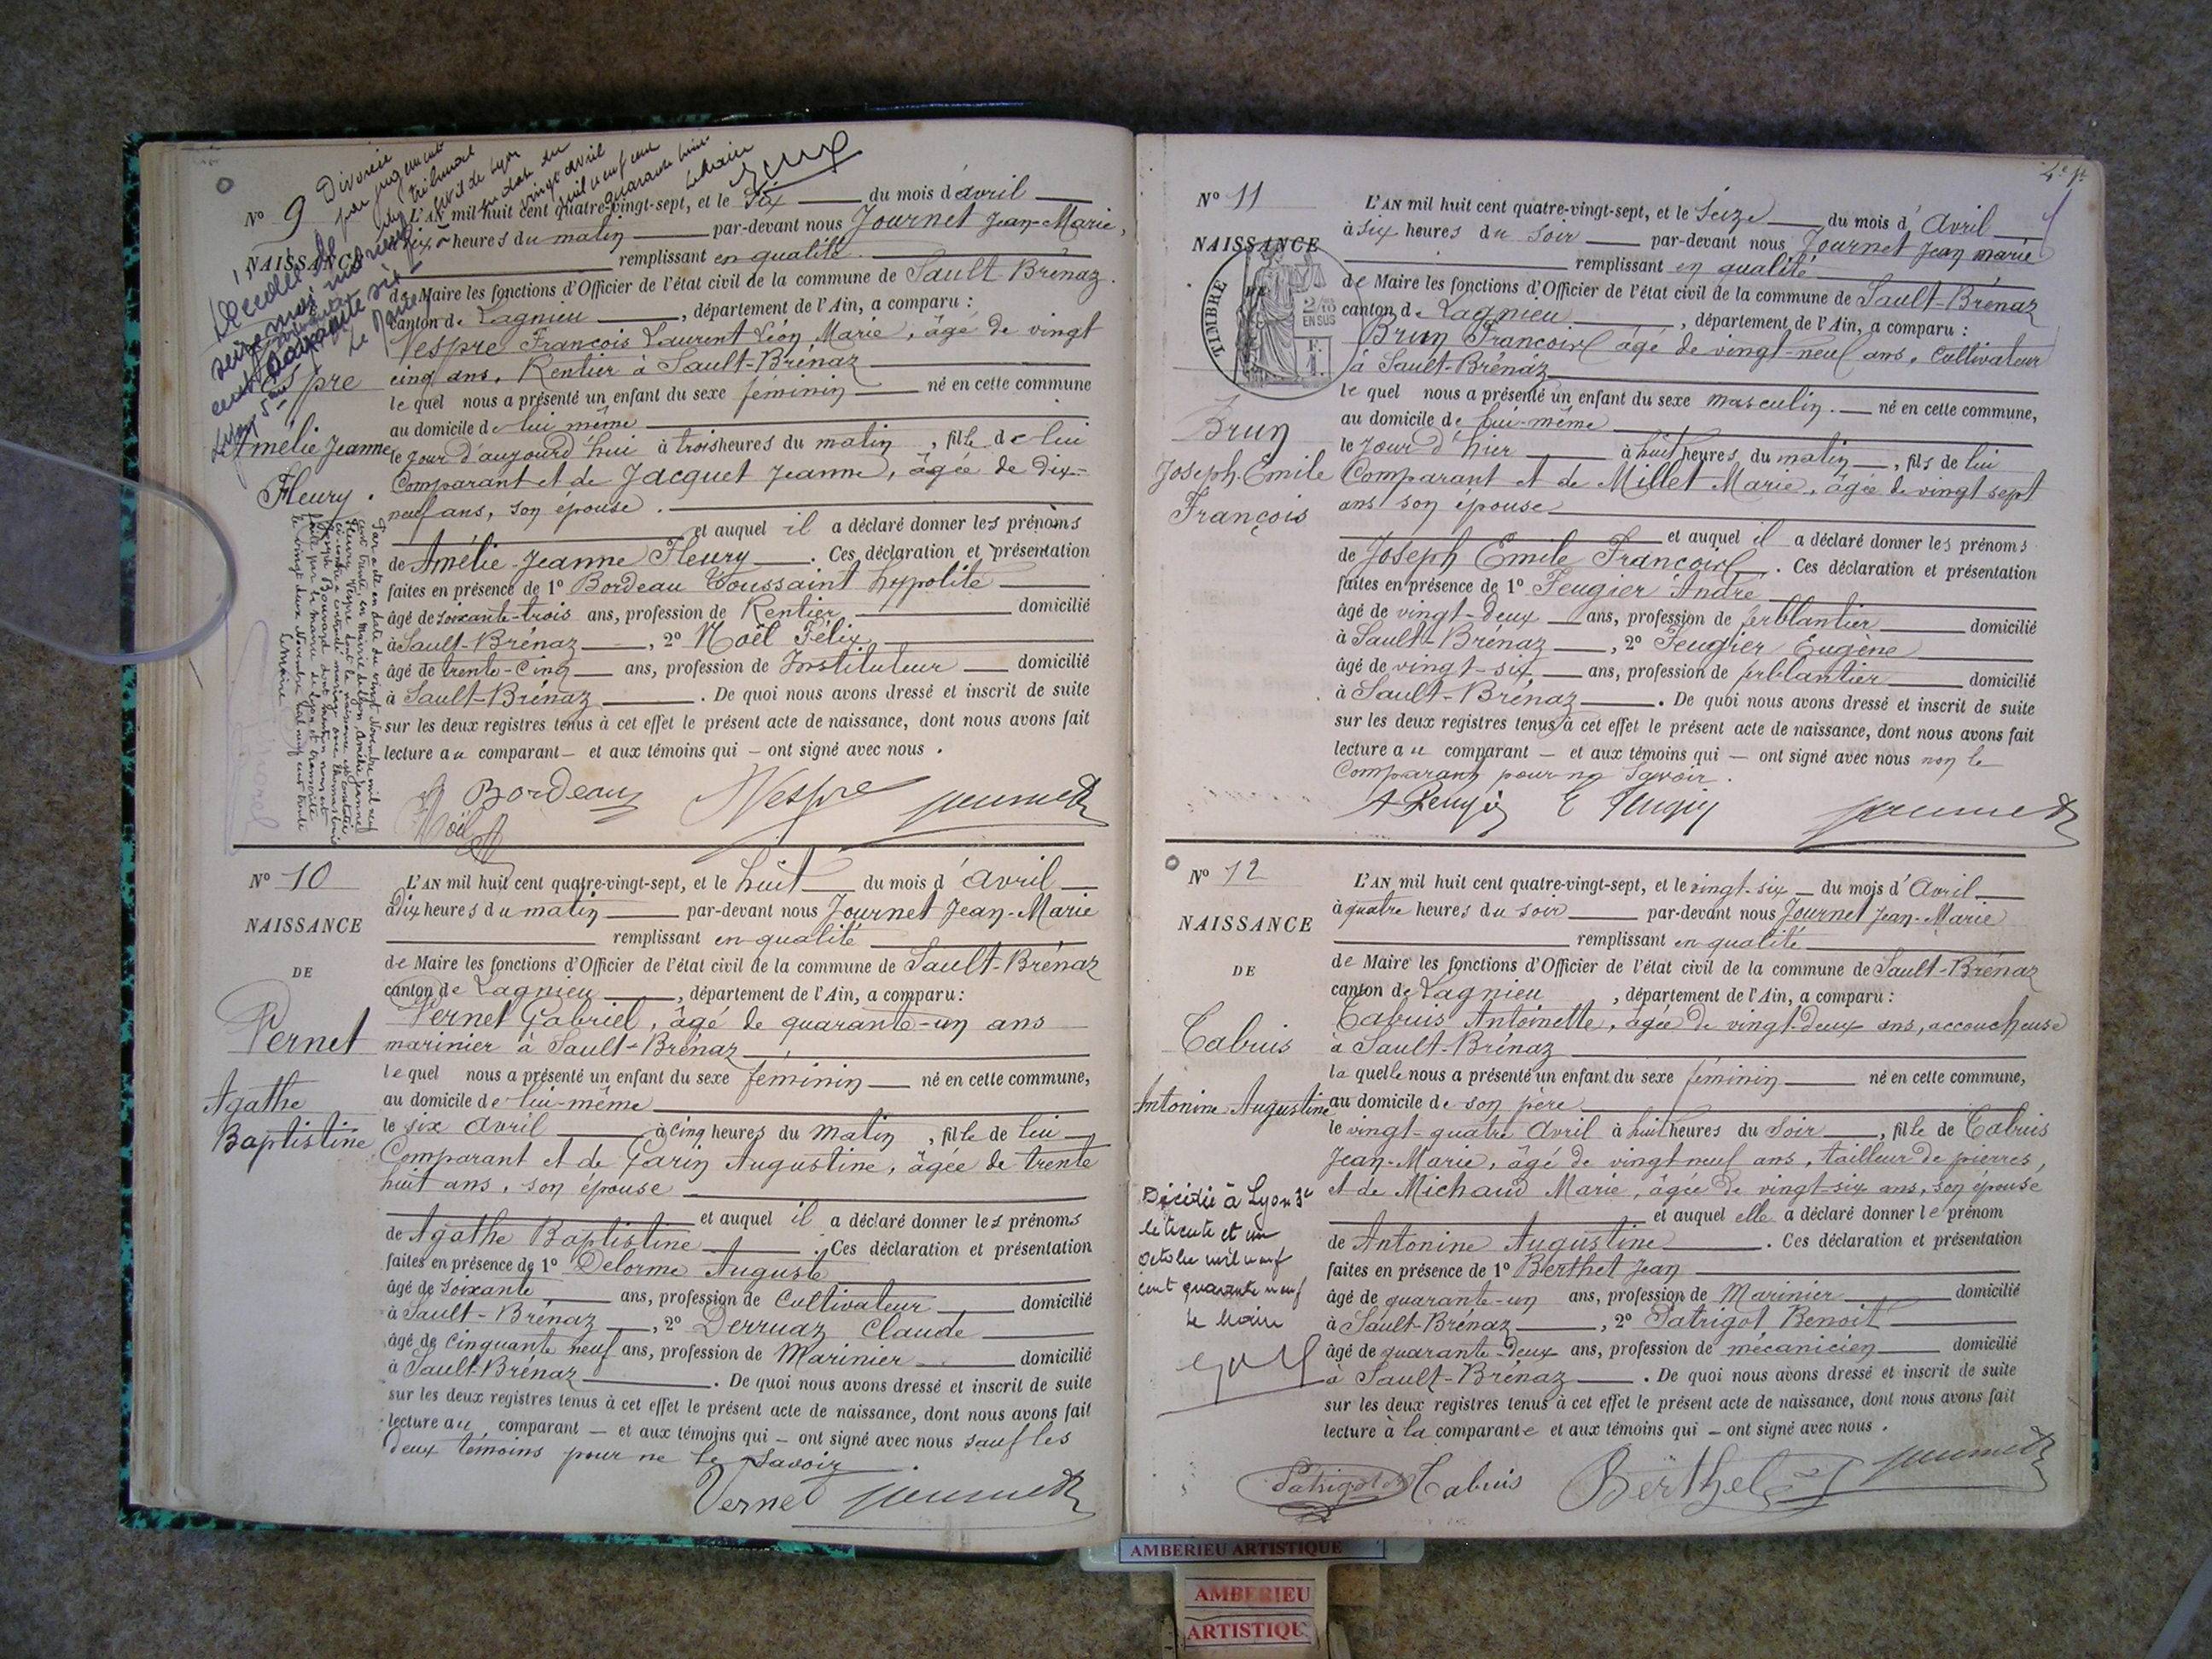 Nº 9
NAISSANCE
Divorcée
par jugement
du tribunal
civil de Lyon
en date du
vingt avril
mil neuf cent
quarante
Le Maire
L'AN mil huit cent quatre-vingt-sept, et le six du mois d'avril
à dix heures du matin par-devant nous Journet Jean-Marie,
remplissant en qualité
de Maire les fonctions d'Officier de l'état civil de la commune de Sault-Brénaz.
canton de Lagnieu, département de l'Ain, a comparu :
Vespre François Laurent Léon Marie, âgé de vingt
cinq ans, Rentier à Sault-Brénaz
lequel nous a présenté un enfant du sexe féminin né en cette commune
au domicile de lui même
le jour d'aujourd'hui à trois heures du matin, fille de lui
Comparant et de Jacquet Jeanne, âgée de dix-
neuf ans, son épouse.
et auquel il a déclaré donner les prénoms
de Amélie Jeanne Fleury. Ces déclaration et présentation
faites en présence de 1º Bordeau Toussaint hyppolite
âgé de soixante-trois ans, profession de Rentier domicilié
à Sault-Brénaz, 2º Noël Félix
âgé de trente-cinq ans, profession de Instituteur domicilié
à Sault-Brénaz. De quoi nous avons dressé et inscrit de suite
sur les deux registres tenus à cet effet le présent acte de naissance, dont nous avons fait
lecture au comparant et aux témoins qui ont signé avec nous.
Bordeau Vespre Journet
Noël
Amélie Jeanne
Fleury.
Par acte en date du vingt Novembre mil neuf
cent trente, en Mairie de Lyon Amélie Jeanne
Fleury Vespre dont la naissance est constatée
ci-contre a contracté mariage avec
Joseph Bouvard dont mention nous est
faite par la mairie de Lyon et transcrite
le vingt deux Novembre mil neuf cent trente
Le Maire
Nº 10
NAISSANCE
DE
Vernet
Agathe
Baptistine
L'AN mil huit cent quatre-vingt-sept, et le huit du mois d'avril
à dix heures du matin par-devant nous Journet Jean-Marie
remplissant en qualité
de Maire les fonctions d'Officier de l'état civil de la commune de Sault-Brénaz
canton de Lagnieu, département de l'Ain, a comparu :
Vernet Gabriel, âgé de quarante-un ans
marinier à Sault-Brénaz
lequel nous a présenté un enfant du sexe féminin né en cette commune,
au domicile de lui-même
le six avril à cinq heures du matin, fille de lui
Comparant et de Garin Augustine, âgée de trente
huit ans, son épouse
et auquel il a déclaré donner les prénoms
de Agathe Baptistine. Ces déclaration et présentation
faites en présence de 1º Delorme Auguste
âgé de soixante ans, profession de Cultivateur domicilié
à Sault-Brénaz, 2º Derruaz Claude
âgé de Cinquante neuf ans, profession de Marinier domicilié
à Sault-Brénaz. De quoi nous avons dressé et inscrit de suite
sur les deux registres tenus à cet effet le présent acte de naissance, dont nous avons fait
lecture au comparant et aux témoins qui ont signé avec nous sauf les
deux témoins pour ne le savoir.
Vernet Journet
Nº 11
NAISSANCE
TIMBRE
2/10
EN SUS
Brun
Joseph-Emile
François
L'AN mil huit cent quatre-vingt-sept, et le seize du mois d'Avril
à six heures du soir par-devant nous Journet Jean marie
remplissant en qualité
de Maire les fonctions d'Officier de l'état civil de la commune de Sault-Brénaz
canton de Lagnieu, département de l'Ain, a comparu :
Brun François âgé de vingt-neuf ans, Cultivateur
à Sault-Brénaz
lequel nous a présenté un enfant du sexe masculin. né en cette commune,
au domicile de lui-même
le jour d'hier à huit heures du matin, fils de lui
Comparant et de Millet Marie, âgée de vingt sept
ans son épouse
et auquel il a déclaré donner les prénoms
de Joseph Emile François. Ces déclaration et présentation
faites en présence de 1º Feugier André
âgé de vingt-deux ans, profession de ferblantier domicilié
à Sault-Brénaz, 2º Feugier Eugène
âgé de vingt-six ans, profession de ferblantier domicilié
à Sault-Brénaz. De quoi nous avons dressé et inscrit de suite
sur les deux registres tenus à cet effet le présent acte de naissance, dont nous avons fait
lecture au comparant et aux témoins qui ont signé avec nous non le
Comparant pour ne savoir.
A Feugier E Feugier Journet
Nº 12
NAISSANCE
DE
Cabuis
Antonine Augustine
Décédée à Lyon 3e
le trente et un
octobre mil neuf
cent quarante neuf
Le Maire
L'AN mil huit cent quatre-vingt-sept, et le vingt-six du mois d'Avril
à quatre heures du soir par-devant nous Journet Jean-Marie
remplissant en qualité
de Maire les fonctions d'Officier de l'état civil de la commune de Sault-Brénaz
canton de Lagnieu, département de l'Ain, a comparu :
Cabuis Antoinette, âgée de vingt-deux ans, accoucheuse
à Sault-Brénaz
laquelle nous a présenté un enfant du sexe féminin né en cette commune,
au domicile de son père
le vingt-quatre Avril à huit heures du soir, fille de Cabuis
Jean-Marie, âgé de vingt neuf ans, tailleur de pierres,
et de Michaud Marie, âgée de vingt-six ans, son épouse
et auquel elle a déclaré donner le prénom
de Antonine Augustine. Ces déclaration et présentation
faites en présence de 1º Berthet Jean
âgé de quarante-un ans, profession de Marinier domicilié
à Sault-Brénaz, 2º Patrigot Benoit
âgé de quarante-deux ans, profession de mécanicien domicilié
à Sault-Brénaz. De quoi nous avons dressé et inscrit de suite
sur les deux registres tenus à cet effet le présent acte de naissance, dont nous avons fait
lecture à la comparante et aux témoins qui ont signé avec nous.
Patrigot Cabuis Berthet Journet
AMBERIEU ARTISTIQUE
AMBERIEU
ARTISTIQUE